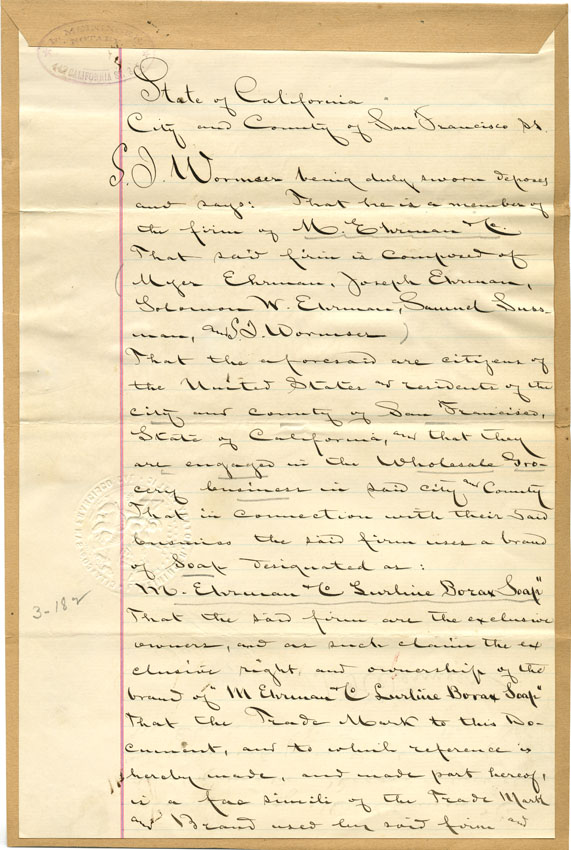 CALIFORNIA ST.
State of California
City and County of San Francisco ss.
S. I. Wormser being duly sworn deposes
and says: That he is a member of
the firm of M. Ehrman & C.
That said firm is composed of
(Myer Ehrman, Joseph Ehrman,
Solomon W. Ehrman, Samuel Suss-
man, and S I. Wormser)
That the aforesaid are citizens of
the United States & residents of the
city and county of San Francisco,
State of California, and that they
are engaged in the Wholesale Gro-
cery business in said city and County
That in connection with their said
business the said firm uses a brand
of Soap designated as:
"M. Ehrman & C Lurline Borax Soap"
3-182
That the said firm are the exclusive
owners, and as such claim the ex
clusive right, and ownership of the
brand of "M Ehrman & C Lurline Borax Soap"
That the Trade Mark to this Do-
cument, and to which reference is
hereby made, and made part hereof,
is a fac simile of the Trade Mark
and Brand used by said firm and